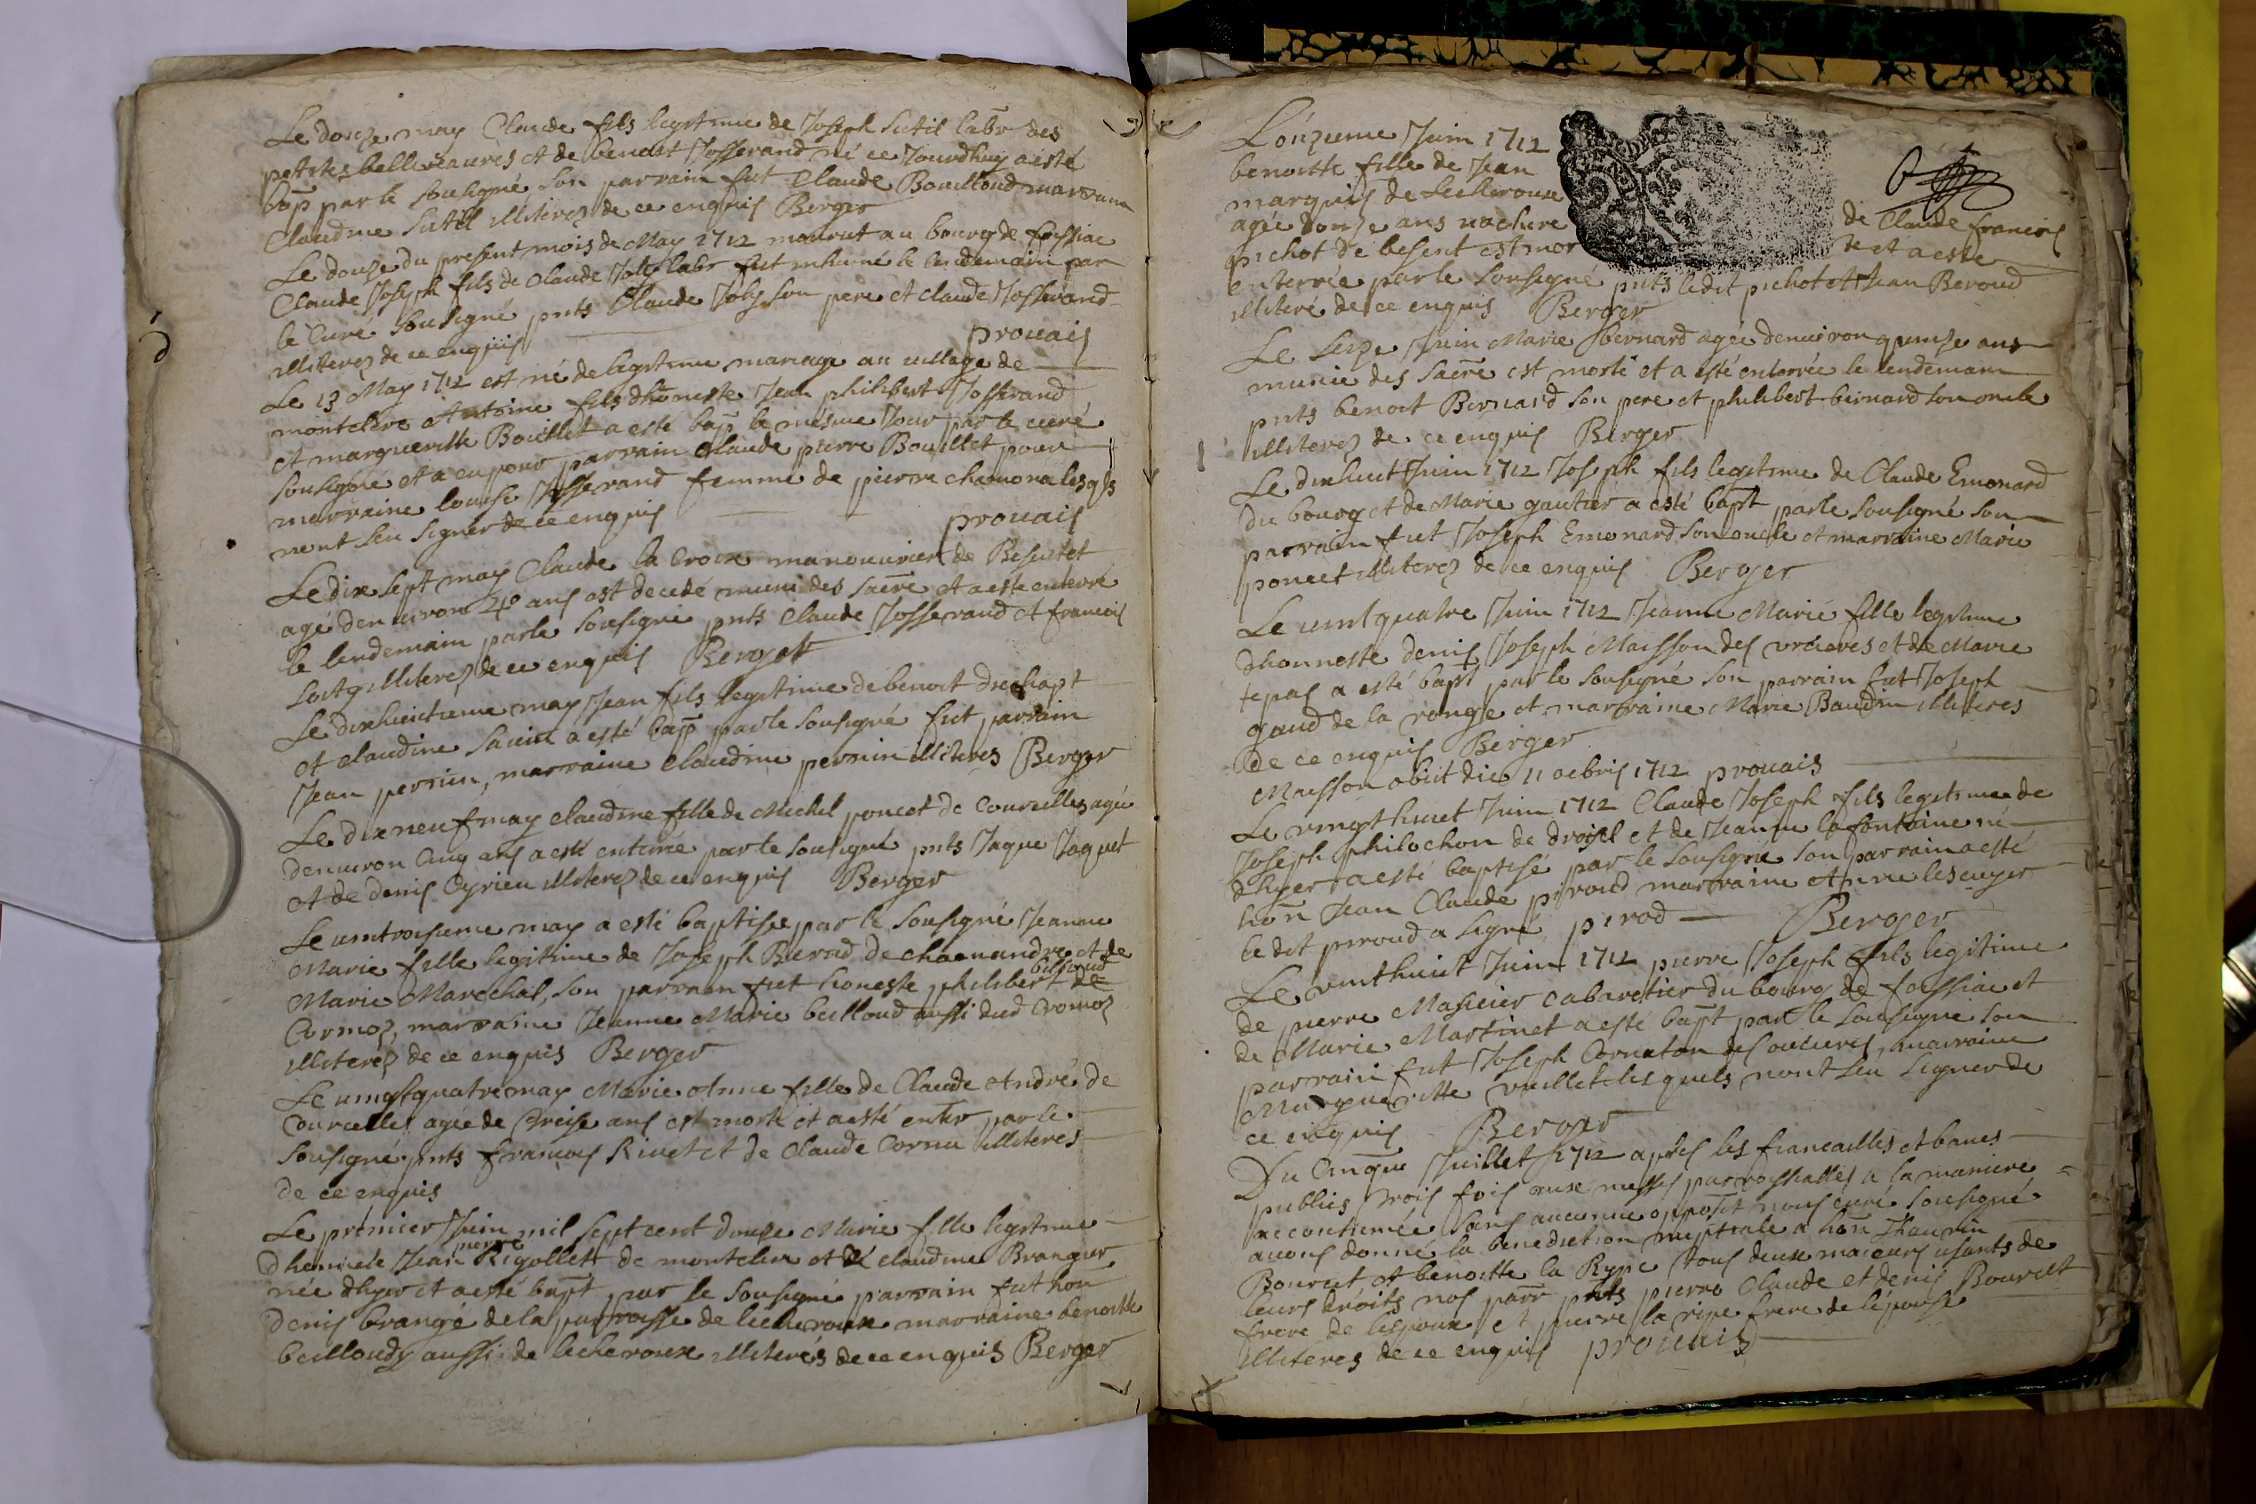 Le douze may Claude fils legitime de Joseph Sutil labr des
petites belle et de benoist Josserand né ce Jourdhuy a esté
bap par le sousigné son parrain fut Claude Bouilloud marraine
Claudine Sutil illiterez de ce enquis Berger
Le douze du present mois de May 1712 mourut au bourg de foissiac
Claude Joseph fils de Claude Joly labr fut inhumé le lendemain par
le Curé sousigné pnts Claude Joly son pere et claude Josserand
illiterez de ce enquis prouais
Le 13 May 1712 est né de legitime mariage au village de
montclere Antoine fils dhoneste Jean philibert Josserand
et margueritte Bouillet a esté bap le mesme Jour par le curé
sousigné et a eu pour parrain Claude pierre Bouillet pour
marraine louise Josserand femme de pierre chamona lesqls
nont seu signer de ce enquis prouais
Le dix sept may Claude la Croix manouvrier de
agé denuiron 40 ans est decedé muni des sacre et a esté enterré
le lendemain par le sousigné pnts Claude Josserand et francois
illiterez de ce enquis Berger
Le dixhuictieme may Jean fils legitime de benoit
et claudine a esté bap par le sousigné fut parrain
Jean perrin, marraine claudine perrin illiteres Berger
Le dixneuf may claudine fille de Michel poncet de Courcelles agée
denuiron Cinq ans a esté enterrée par le sousigné pnts Jaque Jaquet
et de denis Cyrieu illiterez de ce enquis Berger
Le uintroisieme may a esté baptisée par le sousigné Jeanne
Marie fille legitime de Joseph Berod de chaenandre et de
Marie Marechal, son parrain fut honeste philibert billoud de
Cormoz, marraine Jeanne Marie beilloud aussi dud Cromoz
illiterez de ce enquis Berger
Le uingtquatre may Marie Anne fille de Claude André de
Courcelles agée de Treise ans est morte et a esté enterr par le
sousigné pnts francois Riuet et de Claude Cornu illiteres
de ce enquis
Le premier Juin mil sept cent douze Marie fille legitime
dhonneste Jean pierre Rigollet de montcler et de claudine Branger
née dhyer et a esté bapt par le sousigné parrain fut hon
Denis brangé de la parroisse de lecheroux marraine benoitte
beilloudz aussi de lecheroux illiterés de ce enquis Berger
L'onzieme Juin 1712
benoitte fille de Jean de Claude francois
marquis de Lescheroux
agée donze ans uachere
pichot de besent est mor te et a esté
enterrée par le sousigné pnts ledit pichot et Jean Beroud
illiteré de ce enquis Berger
Le seize Juin Marie bernard agée denuiron quinze ans
munie des sacre est morte et a esté enterrée le lendemain
pnts benoit Bernard son pere et philibert bernard son oncle
illiterez de ce enquis Berger
Le dixhuit Juin 1712 Joseph fils legitime de Claude Emonard
du bourg et de Marie gautier a esté bapt par le sousigné son
parrain fut Joseph Emonard son oncle et marraine Marie
poncet illiterez de ce enquis Berger
Le uint quatre Juin 1712 Jeanne Marie fille legitime
dhonneste denis Joseph Maisson des et de Marie
tepas a esté bapt par le sousigné son parrain fut Joseph
gaud de la ronge et marraine Marie Baudin illiteres
de ce enquis Berger
Maisson obiit die 11 octobris 1712 prouais
Le vingt huict Juin 1712 Claude Joseph fils legitime de
Joseph philochon de et de Jeanne la fontaine né
dhyer a esté baptisé par le sousigné son parrain a esté
hon Jean Claude piroud marraine Anne lescuyer
le dit peroud a signé pirod Berger
Le vinthuict Juin 1712 pierre Joseph fils legitime
de pierre Masuier cabaretier du bourg de foissiac et
de Marie Martinet a esté bapt par le sousigné son
parrain fut Joseph Cornaton des marraine
Margueritte vuillet lesquels nont seu signer de
ce enquis Berger
Du Cinqme Juillet 1712 apres les fiancailles et bancs
publies Trois fois aux messes parrossialles a la maniere
accoutumée sans aucune opposit nous curé sousigné
auons donné la benediction nuptiale a hon Thauuin
Bouuret et benoitte la Rype tous deux maieurs usants de
leurs droits nos parr pnts pierre Claude et denis Bouuret
frere de lespoux et pierre la ripe frere de lépouse
illiteres de ce enquis prouais